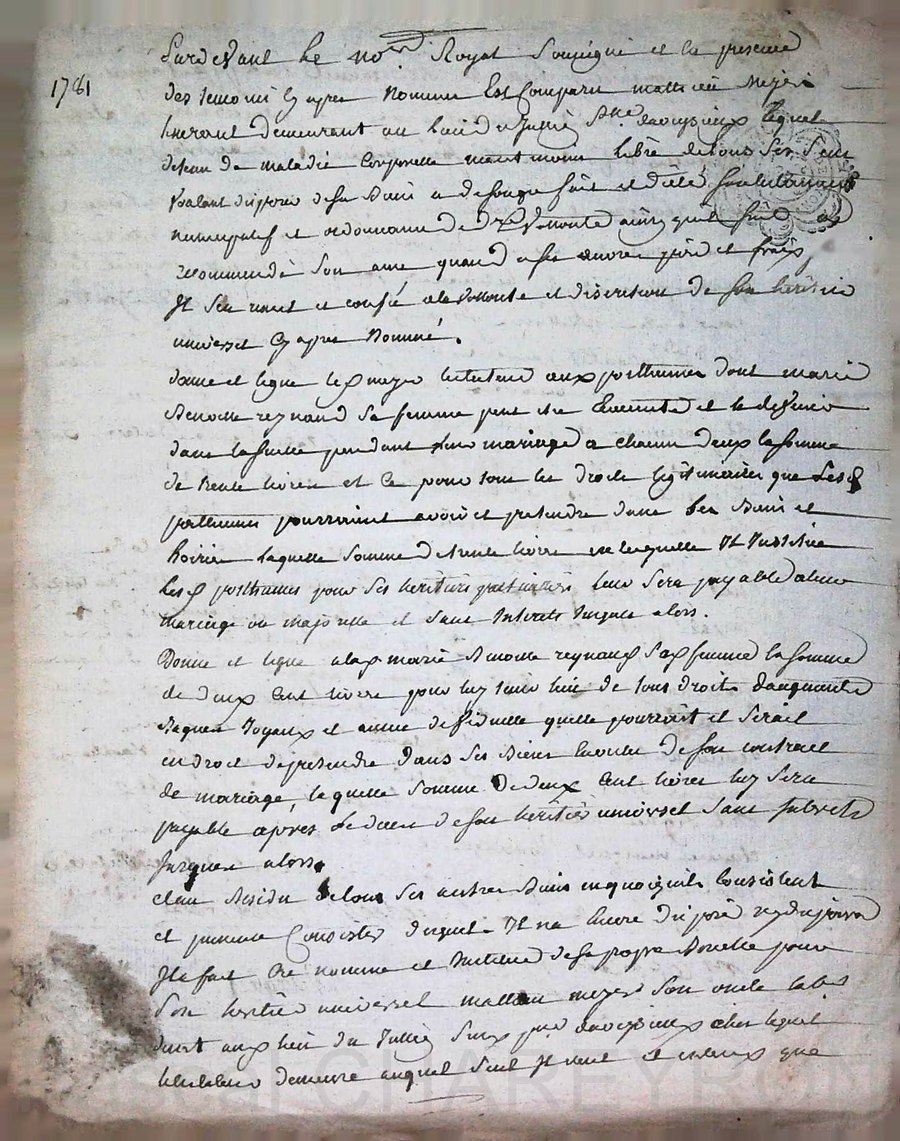 1781
Pardevant le no.re Royal Soussigné et en presence
des temoins cy apres Nommes Est Comparu mathieu meyer
demeurant au lieu du Jullie lequel
detenu de maladie Corporelle neantmoins libre de tous ses sens
voulant disposer de ses Biens a de son gre fait et dicté son testament
nuncupatif et ordonnance de derre volonté ainsy quil suit a
recommandé Son ame quand a ses œuvres pies et frais
Il sen remet et confie a la volonté et discretion de son heritier
universel Cy apres Nommé.
donne et legue led meyer testateur aux posthumes dont marie
Benoite reynaud Sa femme peut etre Enceinte et le devenir
dans la suitte pendant leur mariage a chacun deux la somme
de trente livres et ce pour tous les droits legitimaires que Lesd
posthumes pourroient avoir et pretendre dans ses Biens et
hoirie laquelle somme de trente livres en laquelle Il Institue
lesd posthumes pour ses heritiers particuliers leur Sera payable a leur
mariage ou majorité et sans Interets Jusques alors.
Donne et legue a lad marie Benoite reynaud sad femme la somme
de deux Cent livres pour luy tenir lieu de tous droits daugment
Bagues Joyaux et annee de viduitte quelle pourroit et Seroit
en droit de pretendre dans ses Biens En vertu de son contract
de mariage, laquelle somme de deux Cent livres luy sera
payable apres Le deces de son heritier universel Sans Interets
Jusques alors.
et au Residu de tous ses autres Biens en quoi quils Consistent
et puissent Consister desquels Il na Encore disposé ny dispose
Il a fait Cré nommé et Institué de sa propre Bouche pour
Son heritier universel mathieu meyer Son oncle
au lieu du Jullie chez lequel
le testateur demeure auquel Seul Il veut et entend que